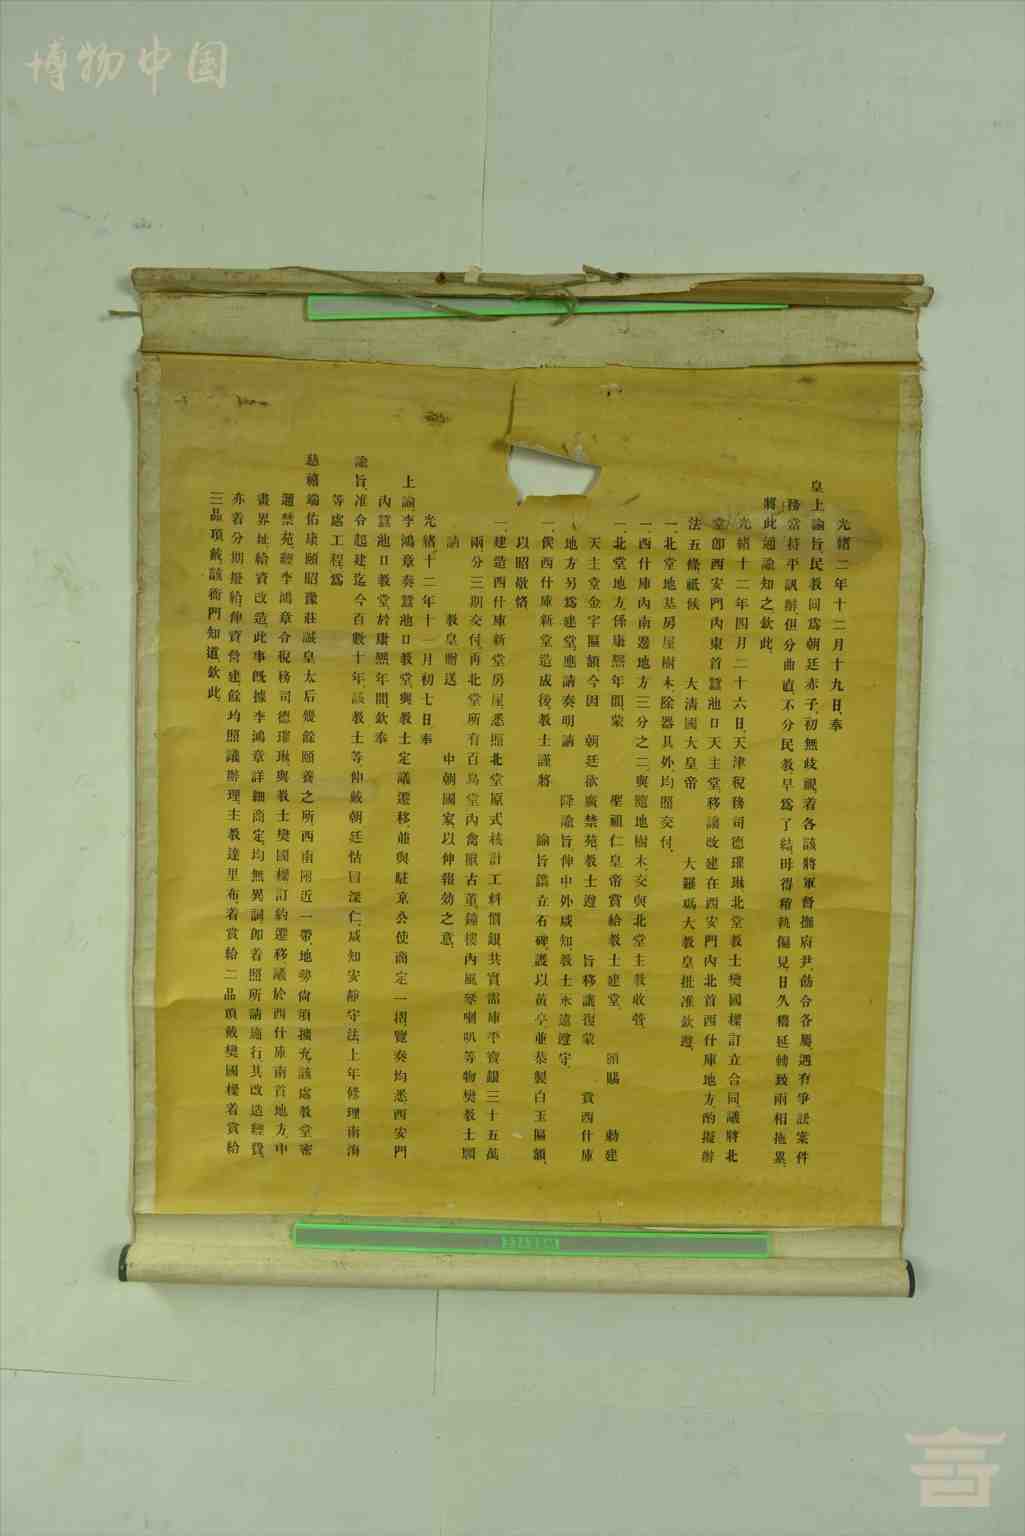 博物中国
光緒二年十二月十九日奉
皇上諭旨民教同爲朝廷赤子初無歧視着各該將軍督撫府尹飭令各屬遇有爭訟案件
務當持平訊辦但分曲直不分民教早爲了結毋得稍執偏見日久稽延轉致兩相拖累
將此通諭知之欽此
光緒十二年四月二十六日天津稅務司德璀琳北堂教士樊國樑訂立合同議將北
堂卽西安門內東首蠶池口天主堂移讓改建在西安門內北首西什庫地方酌擬辦
法五條祗候 大清國大皇帝 大羅瑪大教皇批准欽遵
一北堂地基房屋樹木除器具外均照交付
一西什庫內南邊地方三分之二與隨地樹木交與北堂主教收管
一北堂地方係康熙年間蒙 聖祖仁皇帝賞給教士建堂 頭賜 勅建
天主堂金字匾額今因 朝廷欲廣禁苑教士遵 旨移讓復蒙 賞西什庫
地方另爲建堂應請奏明請 降諭旨俾中外咸知教士永遠遵守
一俟西什庫新堂造成後教士謹將 諭旨鐫立石碑護以黃亭並恭製白玉匾額
以照敬恪
一建造西什庫新堂房屋悉照北堂原式核計工料價銀共實需庫平寶銀三十五萬
兩分三期交付再北堂所有百鳥堂內禽獸古董鐘樓內風琴喇叭等物樊教士願
請 教皇贈送 中朝國家以伸報効之意
光緒十二年十一月初七日奉
上諭李鴻章奏蠶池口教堂與教士定議遷移並與駐京公使商定一摺覽奏均悉西安門
內蠶池口教堂於康熙年間欽奉
諭旨准令起建迄今百數十年該教士等仰戴朝廷怙冒深仁咸知安靜守法上年修理南海
等處工程爲
慈禧端佑康頤昭豫莊誠皇太后幾餘頤養之所西南附近一帶地勢尙須擴充該處教堂密
邇禁苑經李鴻章令稅務司德璀琳與教士樊國樑訂約遷移議於西什庫南首地方申
畫界址給資改造此事旣據李鴻章詳細商定均無異詞卽着照所請施行其改造經費
亦着分期撥給俾資營建餘均照議辦理主教達里布着賞給二品頂戴樊國樑着賞給
三品頂戴該衙門知道欽此